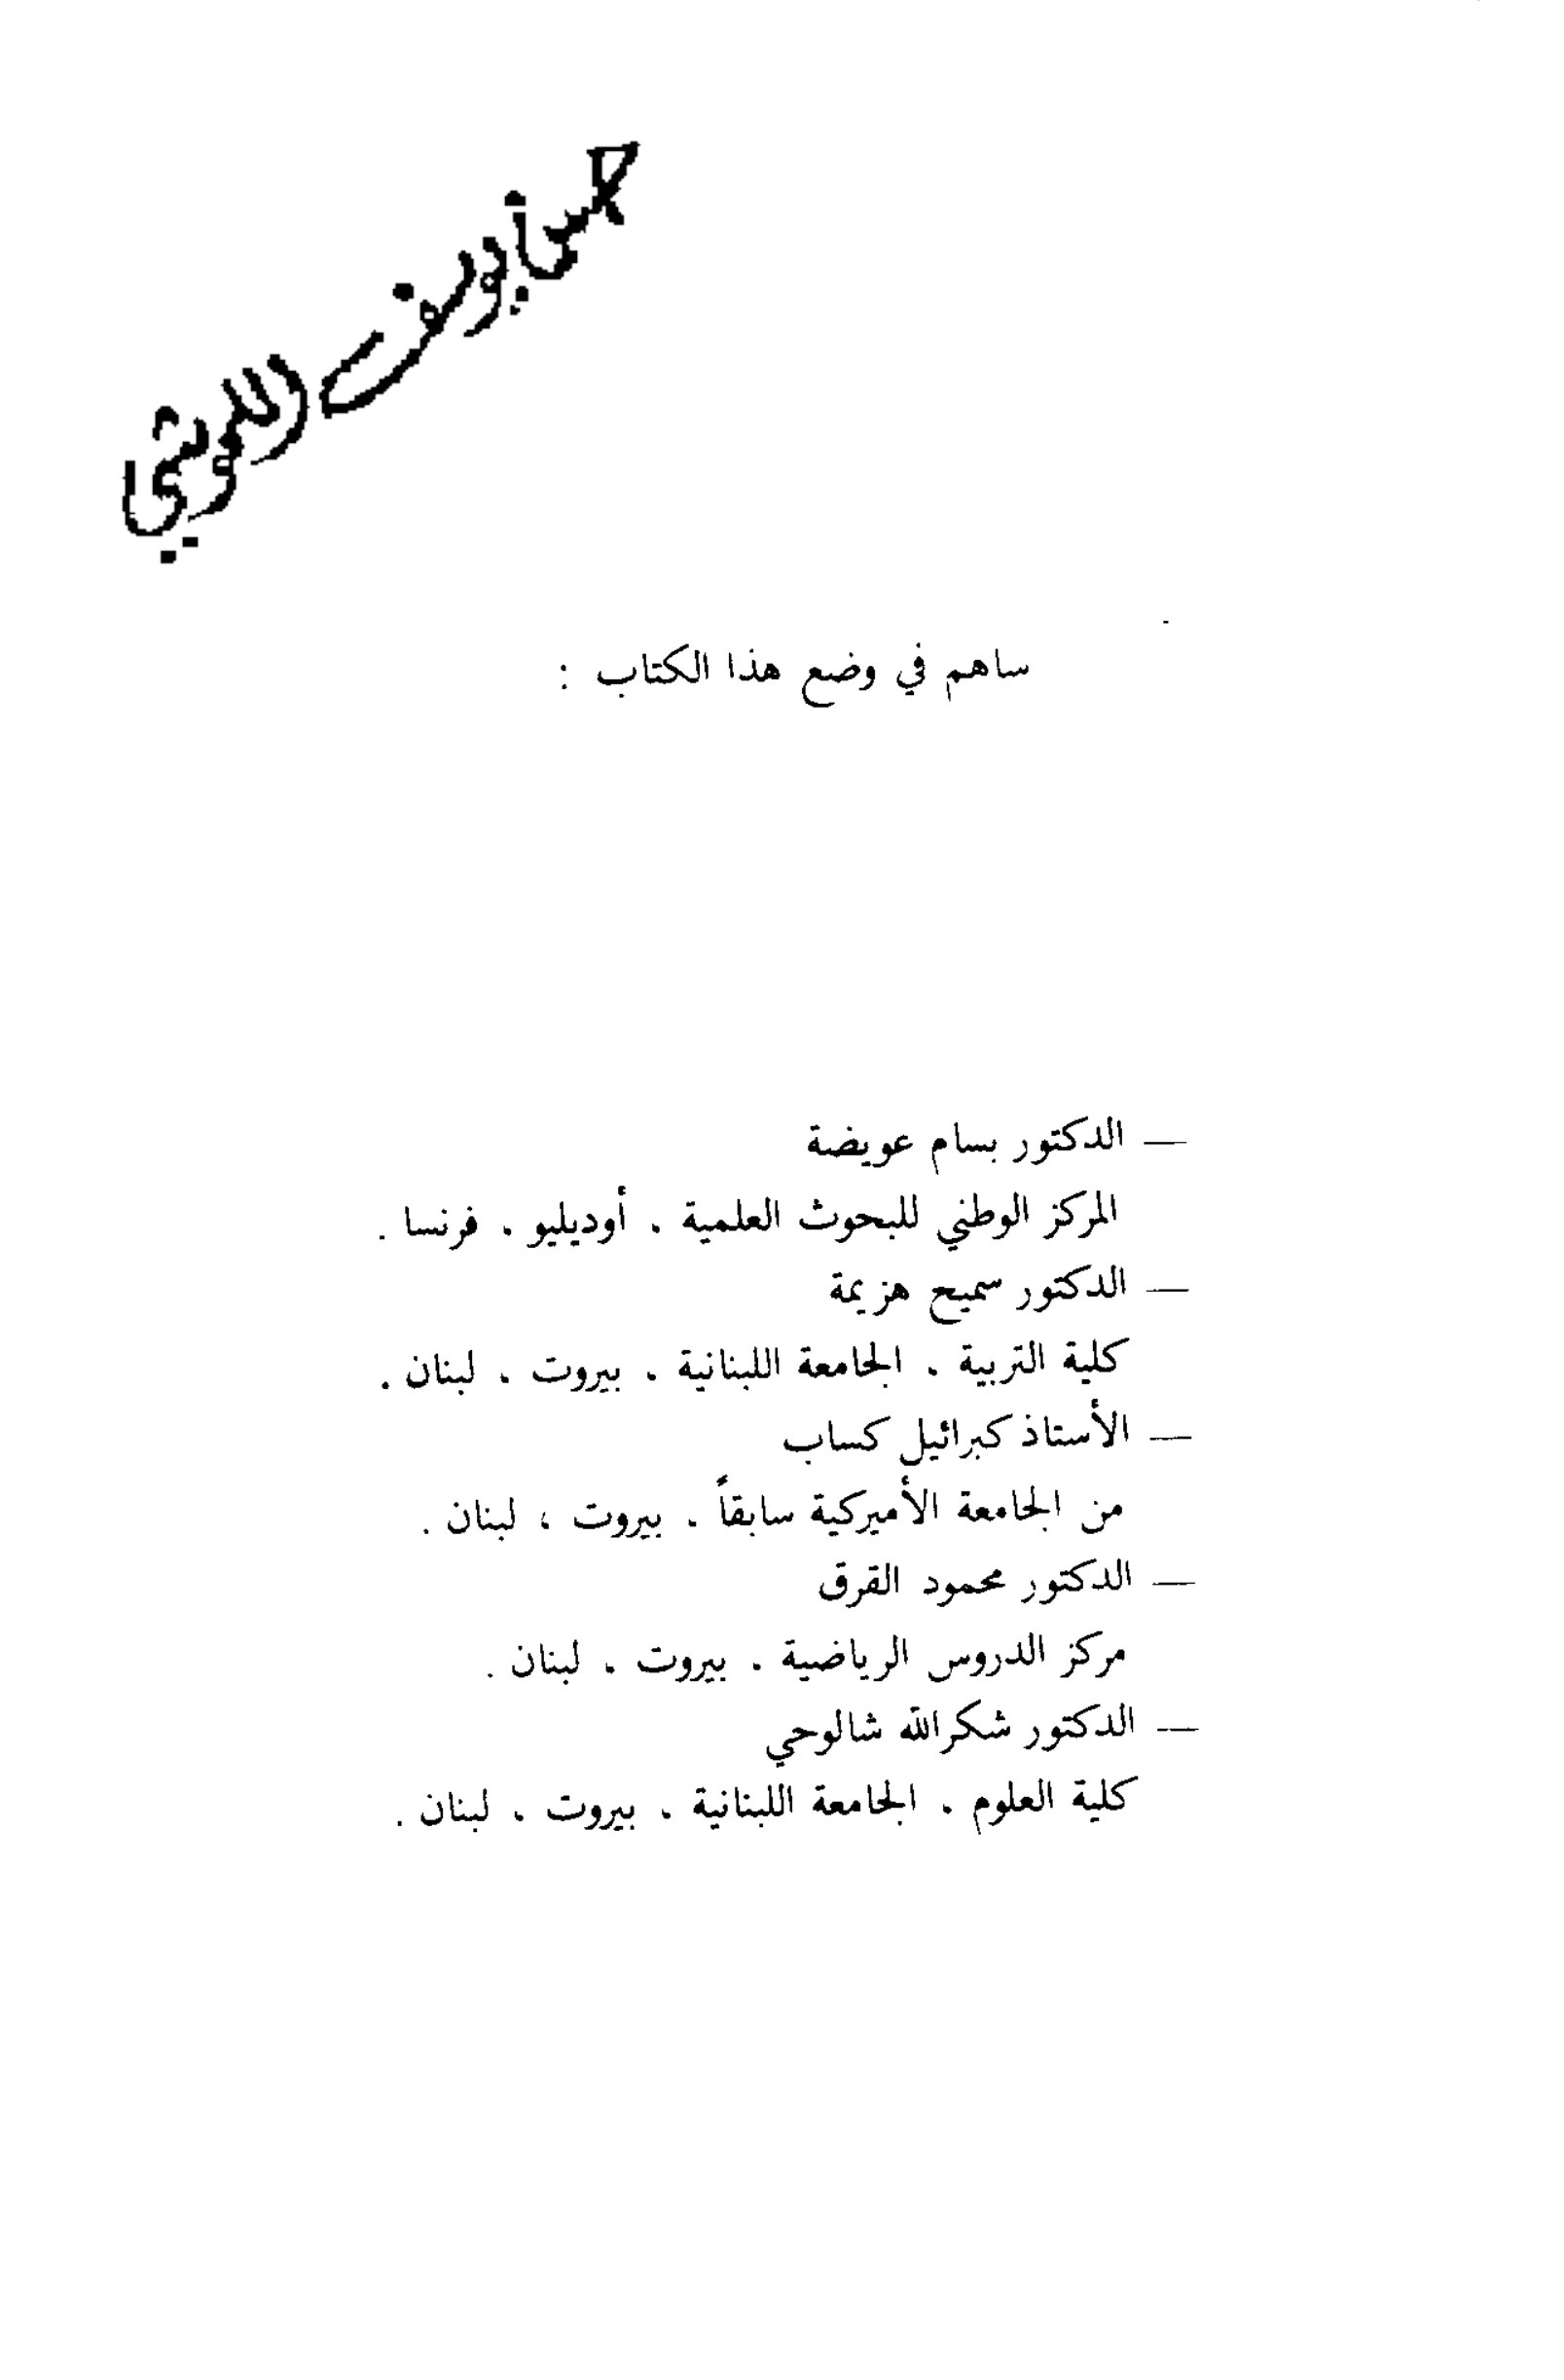 ساهم في وضع هذا الكتاب :
— الدكتور بسام عويضة
المركز الوطني للبحوث العلمية ، أوديليو ، فرنسا .
— الدكتور سميح هزيمة
كلية التربية ، الجامعة اللبنانية ، بيروت ، لبنان .
— الأستاذ كبرائيل كساب
من الجامعة الأميركية سابقاً ، بيروت ، لبنان .
— الدكتور محمود القرق
مركز الدروس الرياضية ، بيروت ، لبنان .
— الدكتور شكرالله شالوحي
كلية العلوم ، الجامعة اللبنانية ، بيروت ، لبنان .